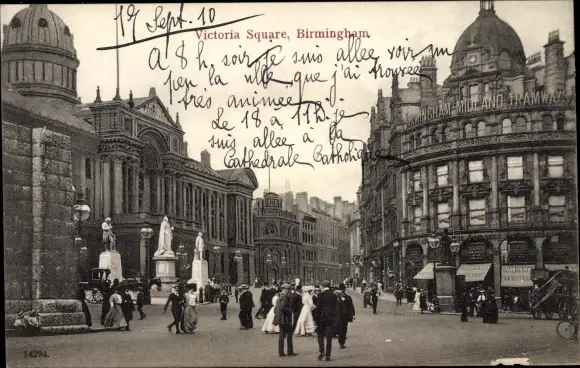 17 Sept. 10
Victoria Square, Birmingham.
A 8 h. soir je suis allee voir un
peu la ville que j'ai trouvée
très animée.
Le 18 a 11 h. je
suis allee à la
Cathedrale Catholique
MIDLAND TRAMWAY
14294.